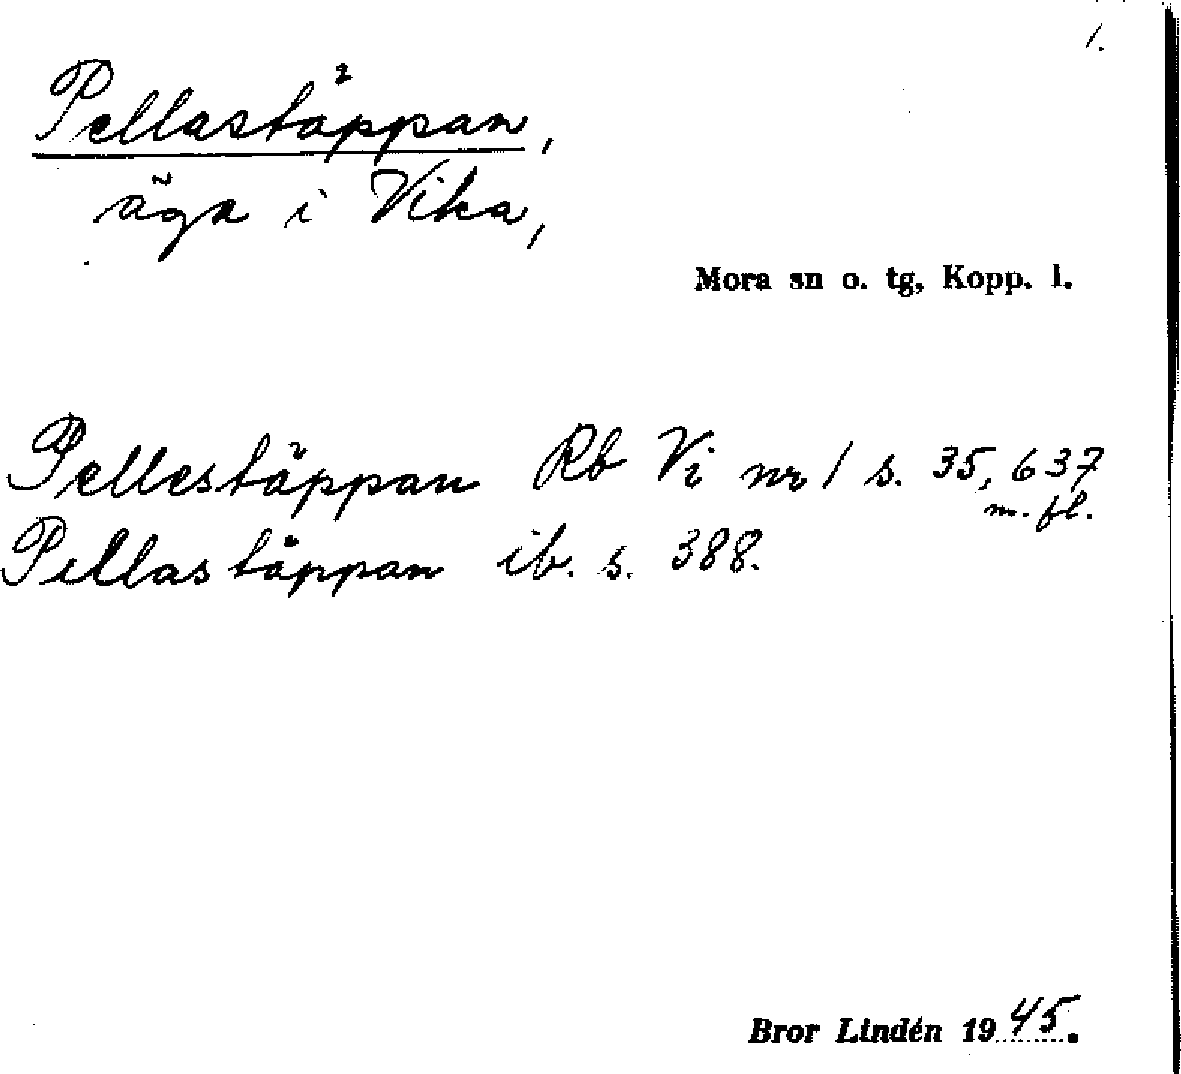 1.
Pellastäppan,
äga i Vika,
Mora sn o. tg, Kopp. l.
Pellestäppan Rb Vi nr 1 s. 35, 637
m. fl.
Pellastäppan ib. s. 388.
Bror Lindén 1945.